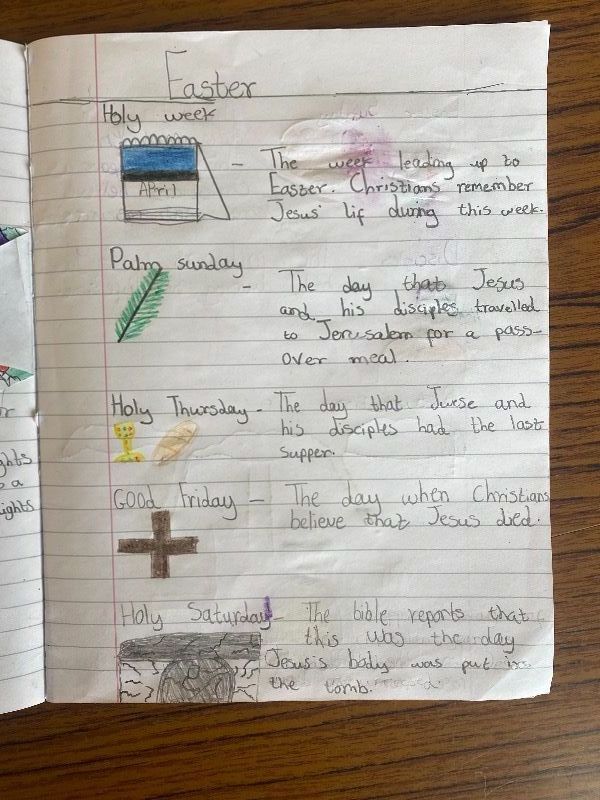 Easter
Holy week
APril
- The week leading up to
Easter. Christians remember
Jesus' lif during this week.
Palm sunday
- The day that Jesus
and his disciples travelled
to Jerusalem for a pass-
over meal.
Holy Thursday - The day that Jwese and
his disciples had the last
supper.
Good Friday - The day when Christians
believe that Jesus died.
Holy Saturday - The bible reports that
this was the day
Jesus's body was put in
the tomb.
ghts
e a
lights